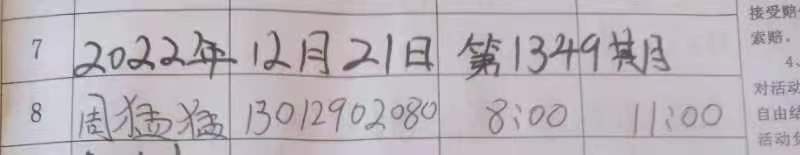 7 2022年 12月21日 第1349期
8 周猛猛 13012902080 8:00 11:00
接受赔
索赔。
4、
对活动
自由给
活动